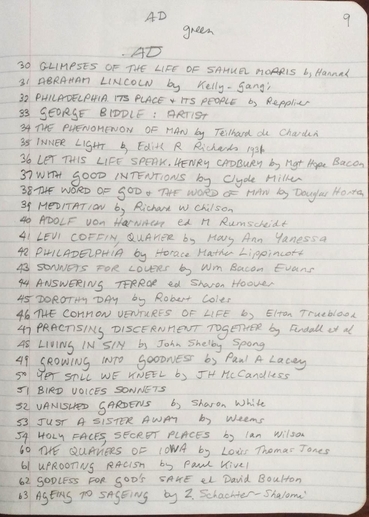 AD
9
green
AD
30 GLIMPSES OF THE LIFE OF SAMUEL MORRIS by Hannah
31 ABRAHAM LINCOLN by Kelly-Gangi
32 PHILADELPHIA ITS PLACE & ITS PEOPLE by Repplier
33 GEORGE BIDDLE: ARTIST
34 THE PHENOMENON OF MAN by Teilhard de Chardin
35 INNER LIGHT by Edith R Richards 1934
36 LET THIS LIFE SPEAK, HENRY CADBURY by Mgt Hope Bacon
37 WITH GOOD INTENTIONS by Clyde Miller
38 THE WORD OF GOD & THE WORD OF MAN by Douglas Horton
39 MEDITATION by Richard W Chilson
40 ADOLF von HARNACK ed M Rumscheidt
41 LEVI COFFIN, QUAKER by Mary Ann Yanessa
42 PHILADELPHIA by Horace Mather Lippincott
43 SONNETS FOR LOVERS by Wm Bacon Evans
44 ANSWERING TERROR ed Sharon Hoover
45 DOROTHY DAY by Robert Coles
46 THE COMMON VENTURES OF LIFE by Elton Trueblood
47 PRACTISING DISCERNMENT TOGETHER by Fendall et al
48 LIVING IN SIN by John Shelby Spong
49 GROWING INTO GOODNESS by Paul A Lacey
50 YET STILL WE KNEEL by JH McCandless
51 BIRD VOICES SONNETS
52 VANISHED GARDENS by Sharon White
53 JUST A SISTER AWAY by Weems
59 HOLY FACES, SECRET PLACES by Ian Wilson
60 THE QUAKERS OF IOWA by Louis Thomas Jones
61 UPROOTING RACISM by Paul Kivel
62 GODLESS FOR GOD'S SAKE ed David Boulton
63 AGEING TO SAGEING by Z Schachter-Shalomi